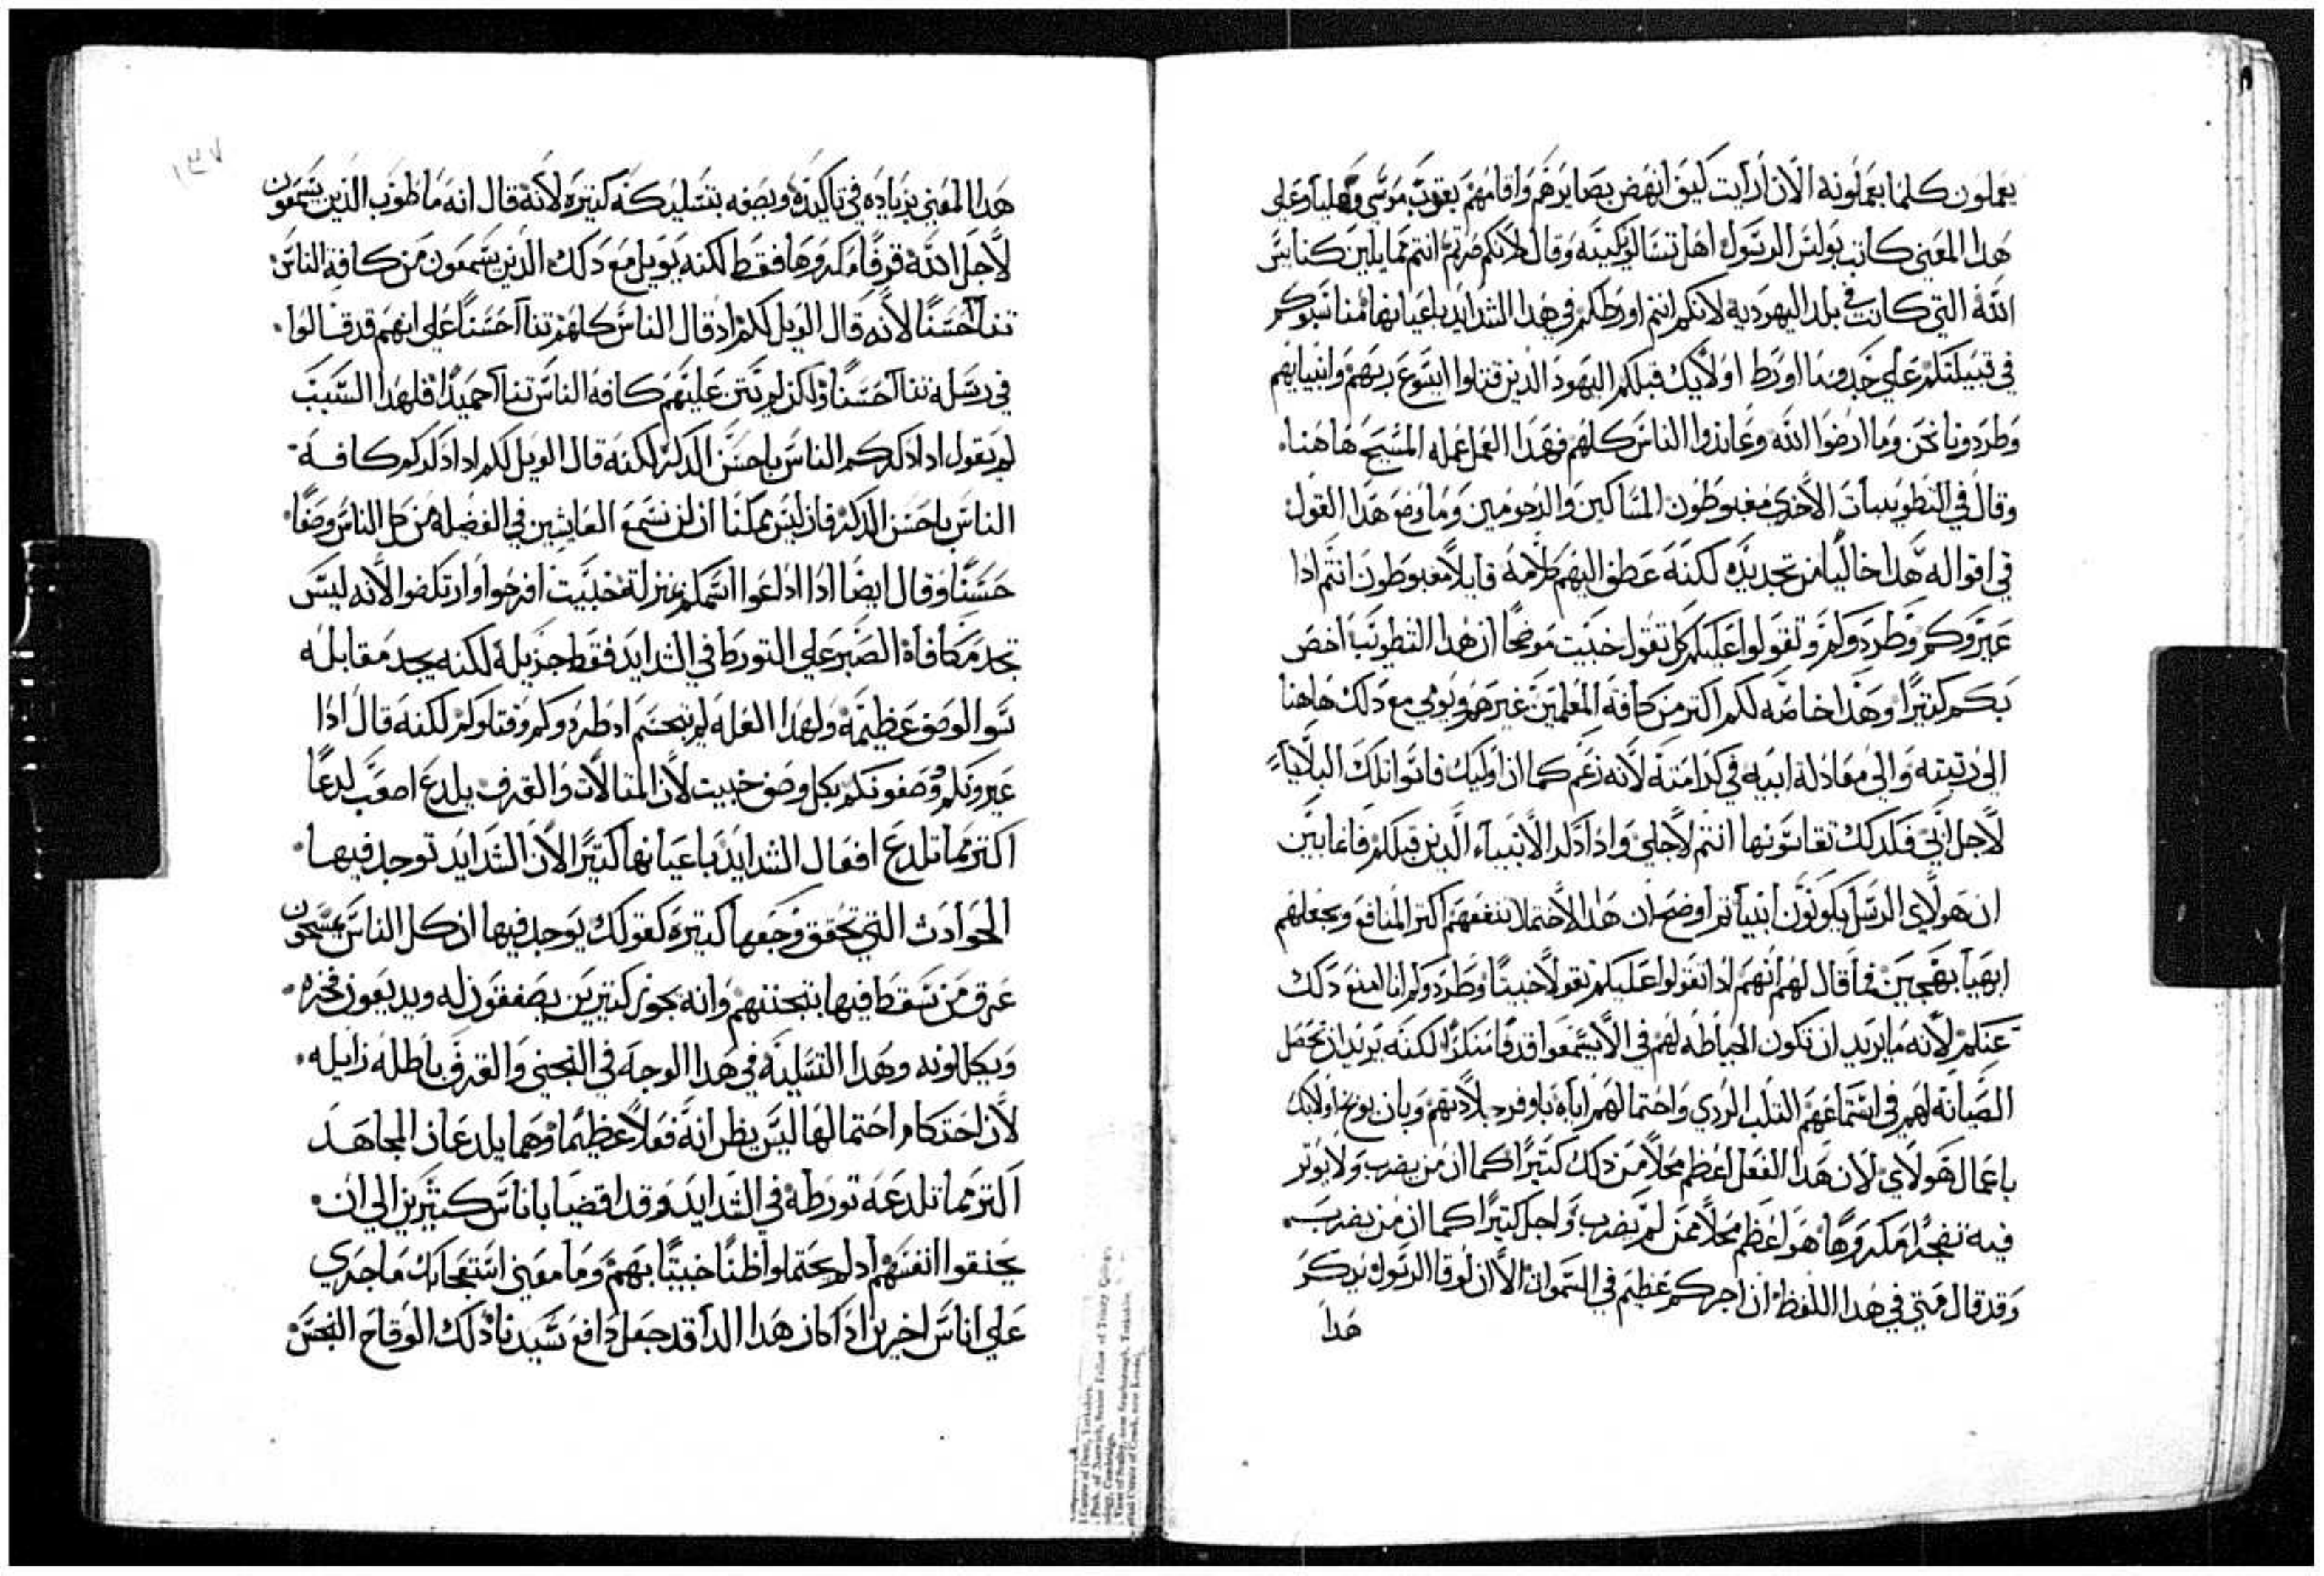 يعملون كلما يعملونه الان أرايت كيف انهض بصايرهم واقامهم يعقوب موسي وهليا وعلي
هدا المعني كاتب بولس الرسول اهل تسالونيكيه وقال لانكم صرتم انتم مما يلين كنايس
الله التي كانت في بلد اليهوديه لانكم انتم اورطكم في هدا الشدايد باعيانها مناسبوكم
في قبيلتكم علي خدوما اورط اولايك قبلكم اليهود الدين قتلوا ايسوع ربهم وانبيايهم
وطردونا نحن وما ارضوا الله وعاندوا الناس كلهم فهدا العمل عمله المسيح هاهنا
وقال في التطويبات الاخري مغبوطون المساكين والرحومين وما وضع هدا القول
في اقواله هدا خاليا من تحديده لكنه عطف اليهم كلامه قايلا مغبوطون انتم ادا
عيروكم وطردوكم وتقولوا عليكم كل تقول خبيت موضحا ان هدا التطويب اخص
بكم كتيرا وهدا خاصه لكم اكتر من كافة المعلمين غيرهم ويومي مع دلك هاهنا
الي رتبته والي معادلة ابيه في كرامته لانه زعم كما ان اوليك قاسوا تلك البلايا
لاجل ابي فكدلك تقاسونها انتم لاجلي وادا دكر الانبياء الدين قبلكم فانما بين
ان هولاي الرسل يكونون انبيا تم اوضح ان هدا الاحتمال ينفعهم اكتر المنافع ويجعلهم
ابهيا بهجين فما قال لهم انهم ادا تقولوا عليكم تقولا خبيتا وطردوكم انا امنع دلك
عنكم لانه ما يريد ان تكون الحياطه لهم في الا يسمعوا قدفا منكرا لكنه يريد ان تحصل
الصيانه لهم في استماعهم التلب الردي واحتمالهم اياه باوفر جلادتهم وبان يوبخوا اولايك
باعمال هولاي لان هدا الفعل اعظم محلا من دلك كتيرا كما ان من يضرب ولا يوتر
فيه تفجرا مكروها هو اعظم محلا ممن لم يضرب واجل كتيرا كما ان من يضرب
وقد قال متي في هدا اللفظ ان اجركم عظيم في السموات الا ان لوقا الرسول يدكر
هدا
١٣٧
هدا المعني بزياده في تاكيده ويصفه بتسليه كنه كتيره لانه قال انه ما طوب الدين يسمعون
لاجل الله قرفا مكروها فقط لكنه يويل مع دلك الدين يسمعون من كافة الناس
تنا احسنا لانه قال الويل لكم اد قال الناس كلهم تنا احسنا علي انهم قد قالوا
في رسله تنا احسنا ولكن لم تتن عليهم كافة الناس تنا احميدا فلهدا السبب
لم يقول ادا دكركم الناس باحسن الدكر لكنه قال الويل لكم ادا دكركم كافة
الناس باحسن الدكر فان ليس ممكنا ان لن نسمع العايشين في الفضيله من كل الناس وصفا
حسنا وقال ايضا ادا اداعوا اسمكم بمنزلة خبيت افرحوا وارتكضوا لانه ليس
تجد مكافاة الصبر علي التورط في الشدايد فقط جزيلة لكنه يجد مقابله
سوا الوصف عظيمة ولهدا العله لم يحسم اد طردوكم وقتلوكم لكنه قال ادا
عيرونكم وصفونكم بكل وصف خبيت لان المتالات والقرف يلدع اصعب لدعا
اكتر مما تلدع افعال الشدايد باعيانها كتيرا لان الشدايد توجد فيها
الحوادت التي تخفف وجعها كتيره كقولك يوجد فيها ان كل الناس يمسحون
عرق من سقط فيها بتحننهم وانه يجوز كتيرين يصفقون له ويديعون فخره
ويكللونه وهدا التسليه في هدا الوجه في التجني والقرف باطله زايله
لان احتكام احتمالها ليس يظن انه فعلا عظيما وهما يلدعان المجاهد
اكتر مما تلدعه تورطه في الشدايد وقد افضيا باناس كتيرين الي ان
يخنقوا انفسهم اد لم يحتملوا ظنا خبيتا بهم وما معني استعجابك ما جري
علي اناس اخرين ادا كان هدا الدا قد جعل دافع سيدنا دلك الوقاح النجس